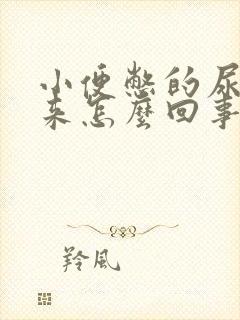 小便憋的尿
来怎麽回事
羚風